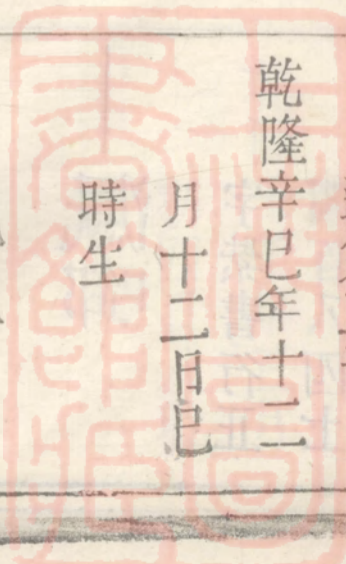 乾隆辛巳年十二
月十二日巳
時生